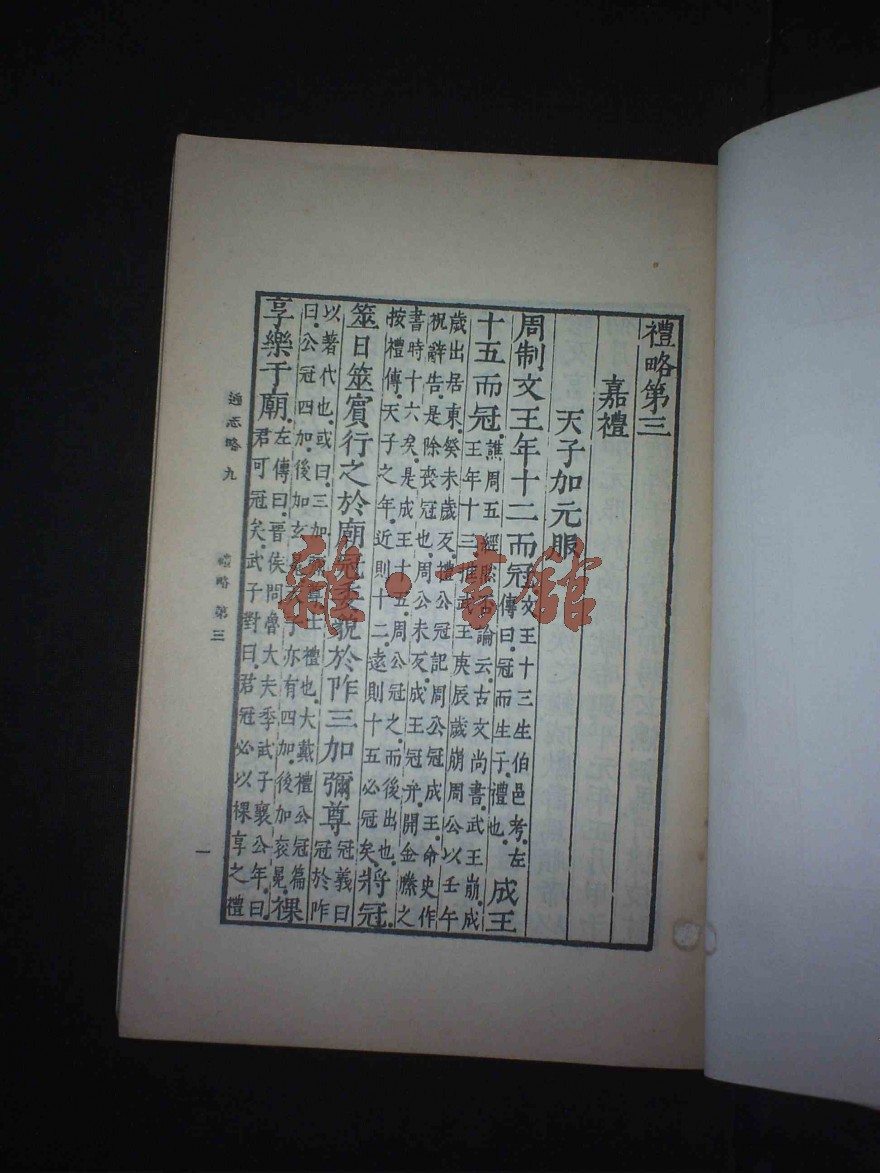 禮略第三
嘉禮
天子加元服
周制文王年十二而冠.文王十三生伯邑考.左傳曰.冠而生子.禮也.成王
十五而冠.譙周五經然否論云.古文尚書.武王崩.成王年十三.推武王庚辰歲崩.周公以壬午
歲出居東.癸未歲反.禮公冠記.周公冠成王.命史作祝辭告.是除喪冠也.周公未反.成王冠弁.開金縢之
書時十六矣.是成王十五.周公冠之.而後出也.按禮傳.天子之年.近則十二.遠則十五必冠矣.將冠.
筮日筮賓.行之於廟.貌於阼三加彌尊冠義曰冠於阼
以著代也.或曰.三加士禮也.大戴禮公冠篇曰.公冠四加.後加玄子亦有四加.後加袞冕.祼
享樂于廟.左傳曰.晉侯問魯大夫季武子.襄公年.曰.君可冠矣.武子對曰.君冠必以祼享之禮
通志略 九
禮略 第三
一
雜·書館